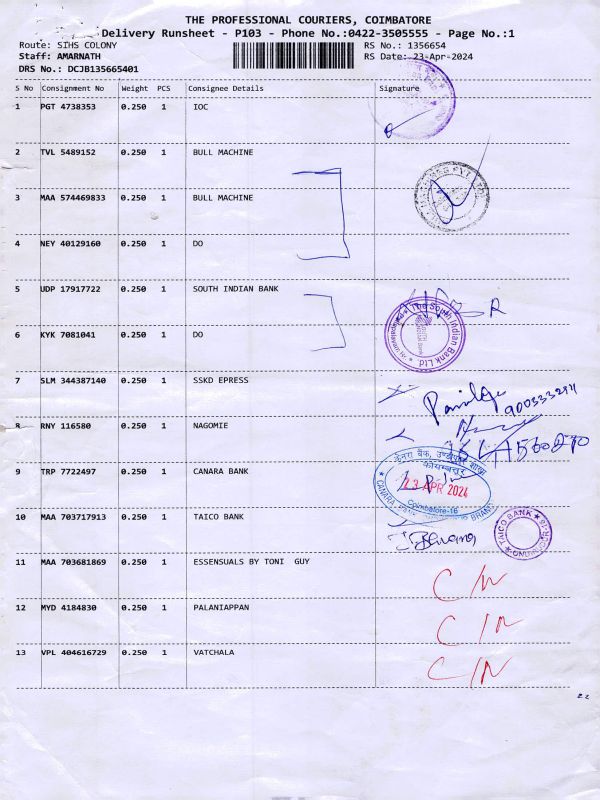 THE PROFESSIONAL COURIERS, COIMBATORE
Delivery Runsheet - P103 - Phone No.:0422-3505555 - Page No.:1
Route: SIHS COLONY RS No.: 1356654
Staff: AMARNATH RS Date: 23-Apr-2024
DRS No.: DCJB135665401
S No Consignment No Weight PCS Consignee Details Signature
1 PGT 4738353 0.250 1 IOC
2 TVL 5489152 0.250 1 BULL MACHINE
3 MAA 574469833 0.250 1 BULL MACHINE
4 NEY 40129160 0.250 1 DO
5 UDP 17917722 0.250 1 SOUTH INDIAN BANK
The South Indian Bank Ltd.
6 KYK 7081041 0.250 1 DO
7 SLM 344387140 0.250 1 SSKD EPRESS
8 RNY 116580 0.250 1 NAGOMIE
9 TRP 7722497 0.250 1 CANARA BANK
केनरा बैंक,
कोयम्बत्तूर
23 APR 2024
Coimbatore-16
CANARA BANK BRANCH
10 MAA 703717913 0.250 1 TAICO BANK
TAICO BANK
11 MAA 703681869 0.250 1 ESSENSUALS BY TONI GUY C/N
12 MYD 4184830 0.250 1 PALANIAPPAN C/N
13 VPL 404616729 0.250 1 VATCHALA C/N
22